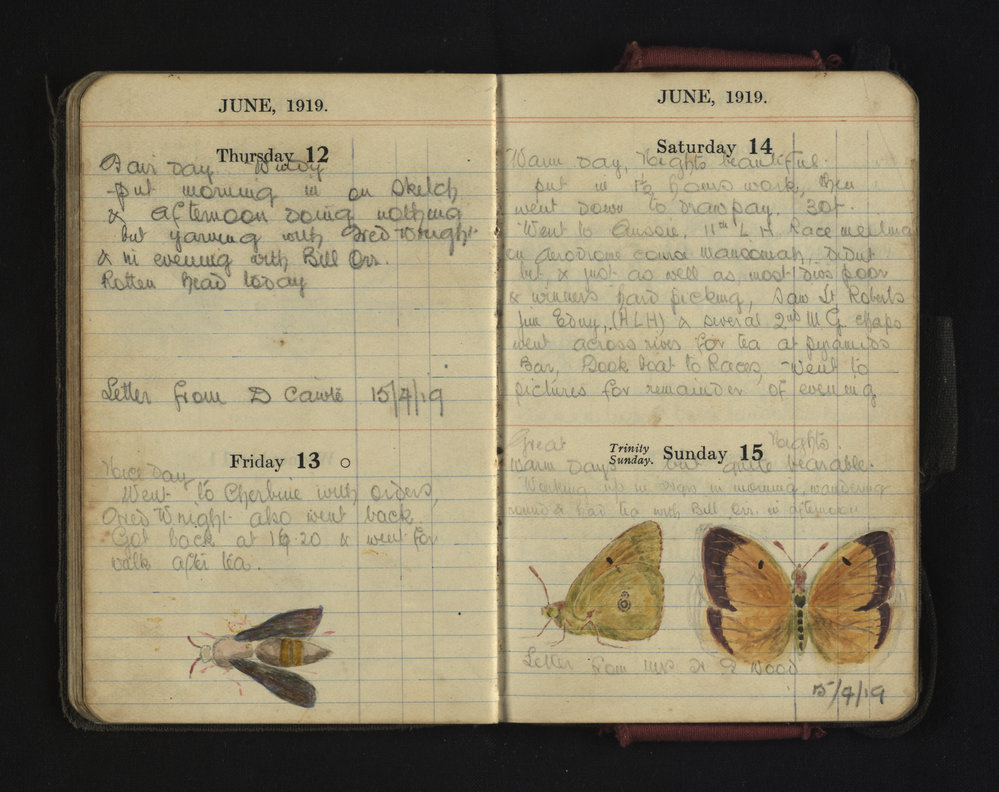 JUNE, 1919.
Thursday 12
Fair day Windy
put morning in on sketch
& afternoon doing nothing
but yarning with Fred Wright
& in evening with Bill Orr.
Rotten head today
Letter from D 15/4/19
Friday 13
Nice day
Went to with orders,
Fred Wright also went back.
Got back at & went for
walk after tea.
JUNE, 1919.
Saturday 14
Warm day, Nights beautiful.
put in 1½ hours work, then
went down to draw pay, 30/-.
Went to Aussie, 11th L H Race meeting
on Aerodrome didnt
bet, & just as well as most divs poor
& winners hard picking, Saw Lt Roberts
Jim (HLH) & several 2nd M G chaps
went across river for tea at pyramids
Bar, Took boat to Races, Went to
pictures for remainder of evening
Trinity Sunday. Sunday 15
Great Nights.
Warm days but quite bearable.
Working up in in morning, wandering
round & had tea with Bill Orr. in afternoon
Letter from Mrs Wood
15/4/19